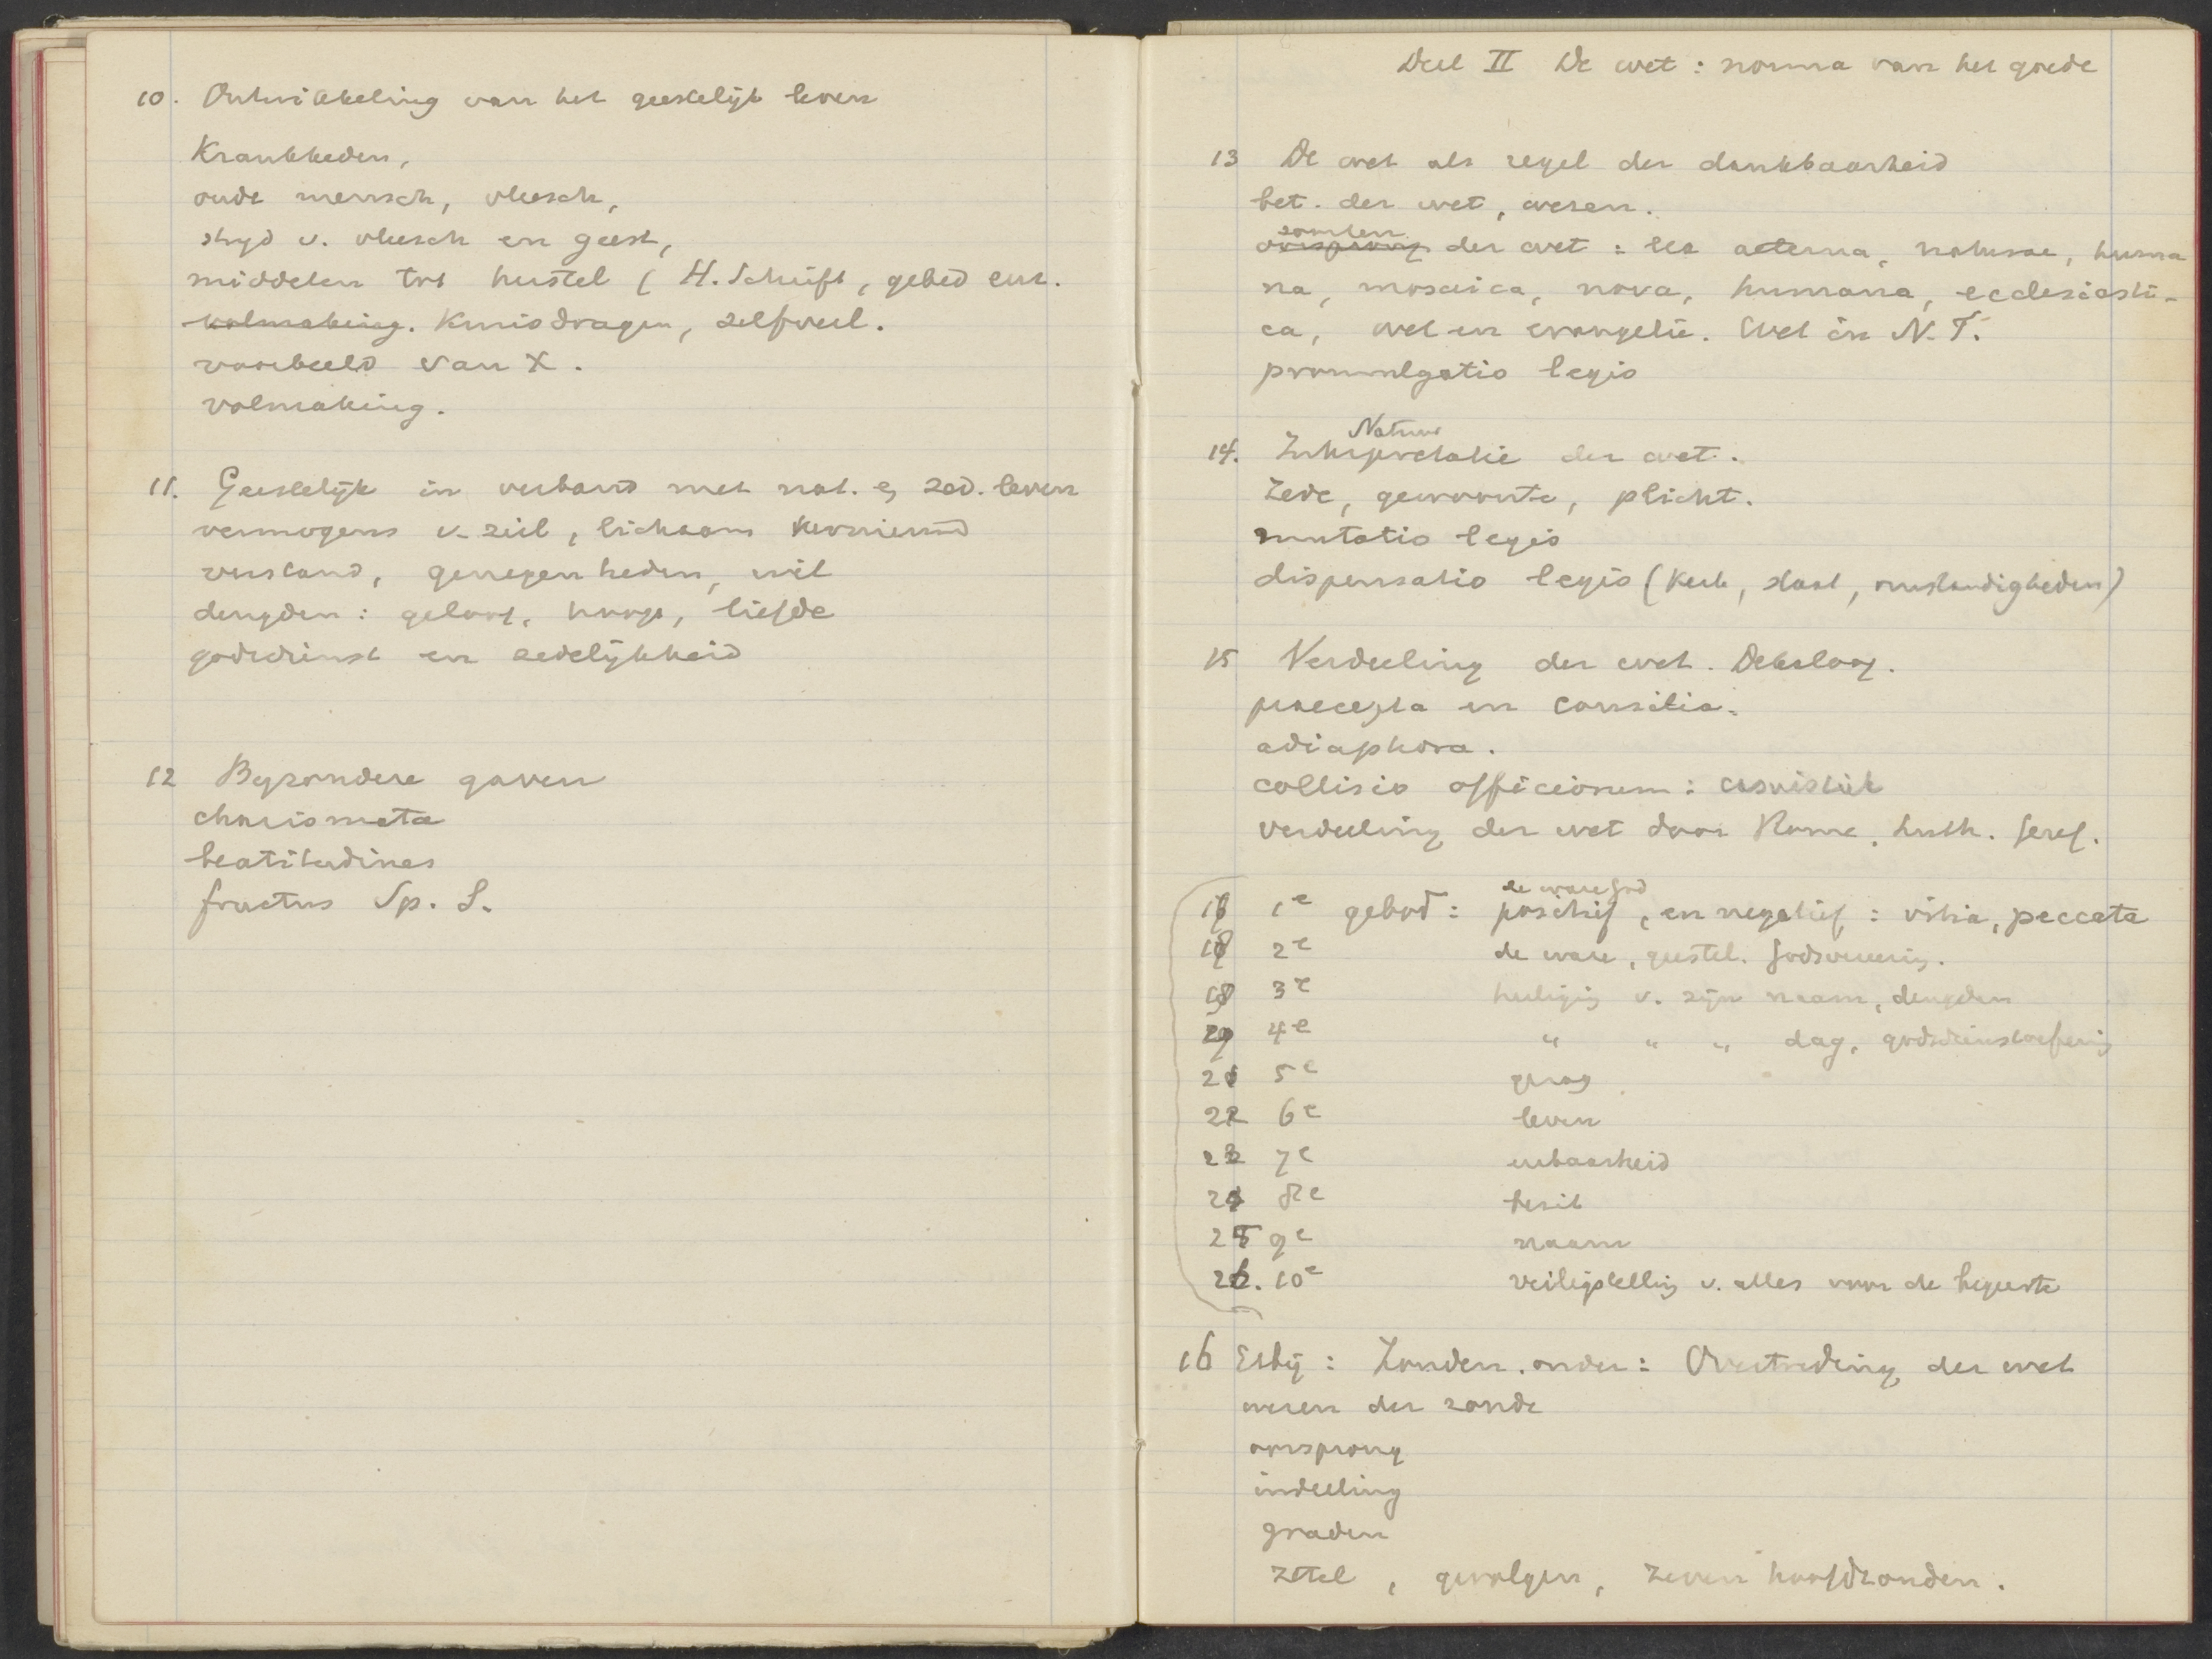 10. Ontwikkeling van het geestelijk leven
Krankheden,
oude mensch, vleesch,
stryd v. vleesch en geest,
middelen tot herstel ( H. Schrift, gebed enz.
volmaking. Kruisdragen, zelfverl.
voorbeeld van X.
volmaking.
11. Geestelijk in verband met nat. en zed. leven
vermogens v. ziel, lichaam
verstand, genegenheden, wil
deugden: geloof, hoop, liefde
godsdienst en zedelijkheid
12 Byzondere gaven
charismata
beatitudines
fructus Sp. S.
Deel II De wet: norma van het goede
13 De wet als regel der dankbaarheid
bet. der wet, wezen.
soorten
oorsprong der wet: lex aeterna, naturae, huma
na, mosaica, nova, humana, ecclesiasti-
ca, wet en evangelie. Wet in N.T.
promulgatio legis
Natuur
14. Interpretatie der wet.
Zede, gewoonte, plicht.
mutatio legis
dispensatio legis (kerk, staat, omstandigheden)
15 Verdeeling der wet. Dekaloog.
praecepta en consilia.
adiaphora.
collisio officiorum: casuistiek
verdeeling der wet door Rome, Luth. Geref.
de ware God
1e gebod: positief, en negatief: vitia, peccata
2e de ware, geestel. Godsvereerig.
3e heiligig v. zijn naam, deugden
4e " " " dag, godsdienstoefenig
21 5e gezag
22 6e leven
23 7e eerbaarheid
24 8e bezit
25 9e naam
26. 10e veiligstellig v. alles voor de begeerte
16 Erbij: Zonden. onder: Overtreding der wet
wezen der zonde
oorsprong
indeeling
graden
zetel, gevolgen, zeven hoofdzonden.